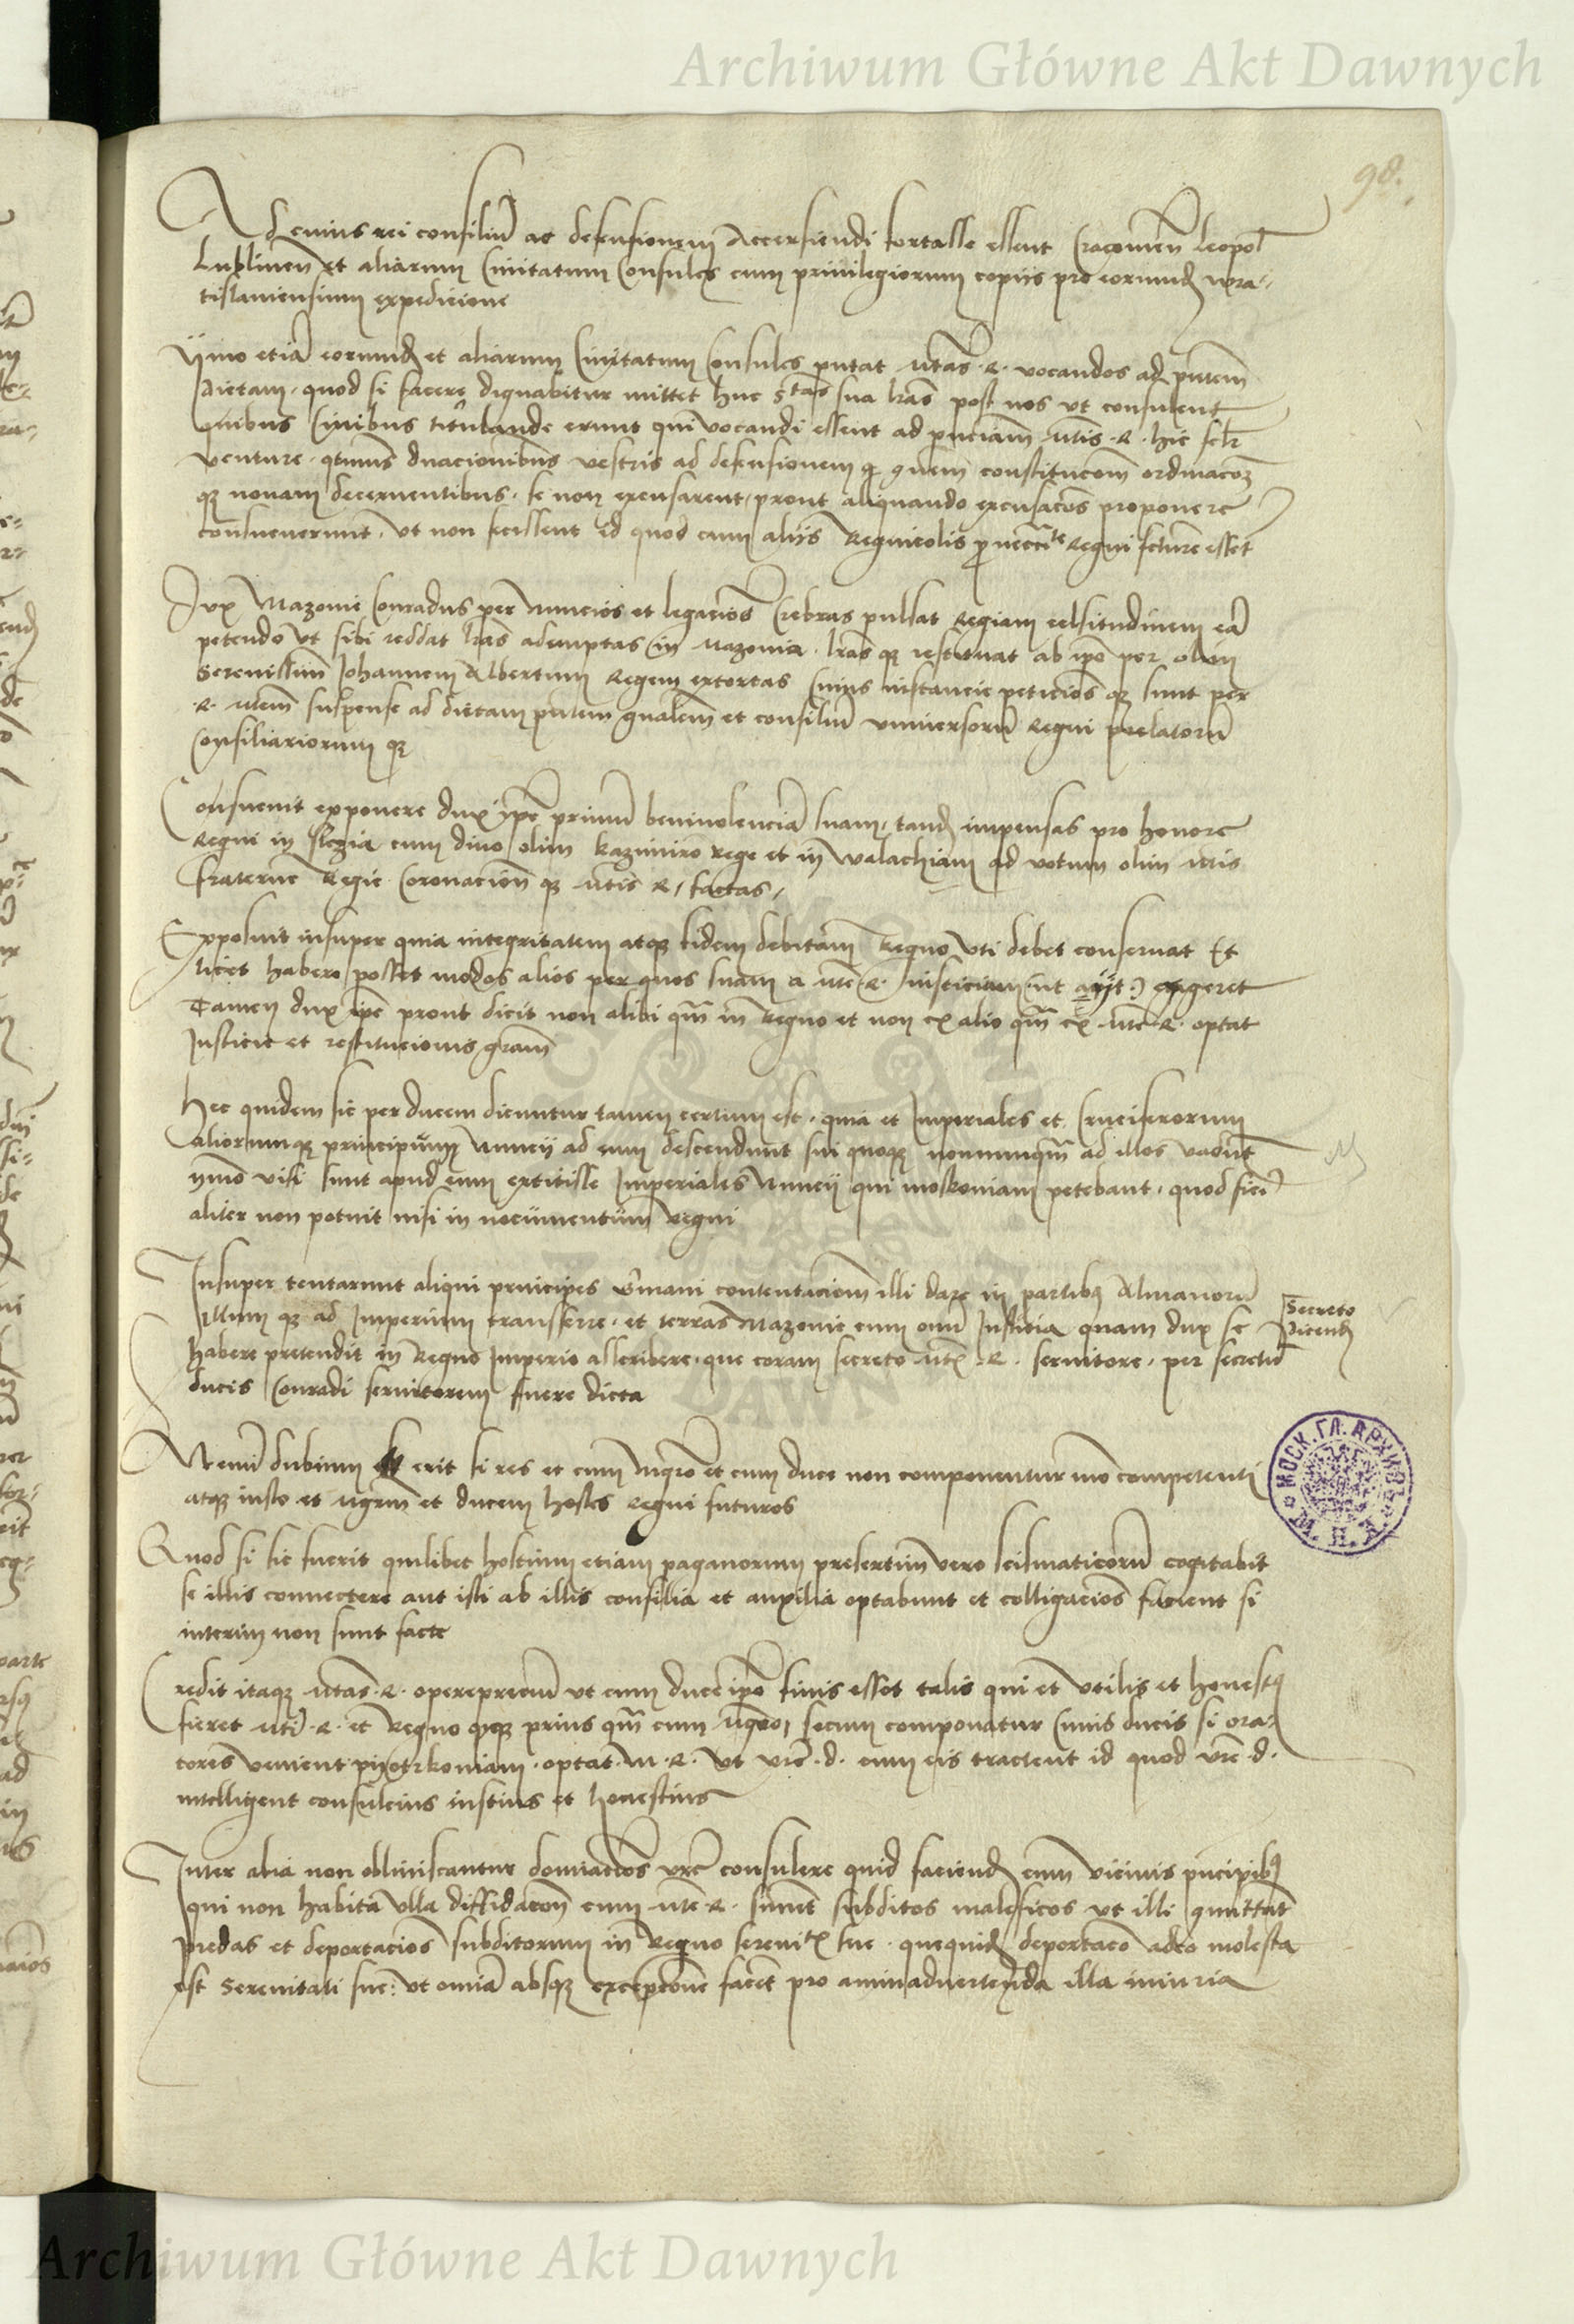 Archiwum Główne Akt Dawnych
98.
Ad cuius rei consiliū ac defensionem Accersiendi fortasse essent Cracouien̄ Leopol̄
Lublinen̄ et aliarum Ciuitatum Consules cum priuilegiorum copiis pro eorumdȝ wra-
tislauiensium expedicione
ymo etiā eorumdȝ et aliarum Ciuitatum Consules putat Mtas R. vocandos ad pn̄tem
dietam, quod si facere dignabitur mittet huc Stas sua lr̄as post nos vt consulent
quibus Ciuibus titulande erunt qui vocandi essent ad pn̄ciam Mtis R. hic
venture. vestris ad defensionem constitucōm ordinacōȝ
qȝ nouam decernentibus, se non excusarent, prout aliquando excusacōs proponere
consueuerunt, vt non fecissent id quod cum aliis Regnicolis Regni esset
Dux Mazouie Conradus per Nuncios et legacios crebras pulsat Regiam celsitudinem eā
petendo vt sibi reddat tr̄as ademptas in Mazouia. lr̄as qȝ restituat ab ipō per olim
Serenissim̄ Johannem Albertum Regem extortas Cuius instancie peticiōs qȝ sunt per
R. Mtem suspense ad dietam pn̄tem gn̄alem et consiliū vniuersorū Regni prelatorū
Consiliariorum qȝ
Consueuit exponere dux ipē primū beniuolenciā suam, tandȝ impensas pro honore
Regni in slezia cum diuo olim Kazimiro rege et in walachiam ad votum olim Mtis
fraterne Regie Coronacion̄ qȝ Mtis R, factas,
Exposuit insuper quia integritatem atqȝ fidem debitam Regno vti debet conseruat Et
licet habere posset modos alios per quos suam a Mte R. iusticiam (ut ayit) exigeret
Tamen dux ipē prout dicit non alibi qm̄ in Regno et non ex alio qm̄ ex Mte R. optat
Justicie et restitucionis grām
Hec quidem sic per ducem dicuntur tamen certum est, quia et Imperiales et Cruciferorum
aliorumqȝ principum Nuncij ad eum descendunt sui quoqȝ nonnunqm̄ ad illos vadūt
ymo visi sunt apud eum extitisse Imperiales Nuncij qui moskouiam petebant, quod fieri
aliter non potuit nisi in nocumentum regni
Insuper tentarunt aliqui principes contentaciom̄ illi dare in partibȝ Almanorū
Illum qȝ ad Imperium transferre, et terras Mazouie cum omī Justitia quam dux se
habere pretendit in Regno Imperio asscribere, que coram secreto Mtis R. seruitore, per secretū
ducis Conradi seruitorem fuere dicta
Secreto
dicendȝ
Nemī dubium erit si res et cum Mgrō et cum duce non componentur mō competenti
atqȝ iusto et Mgrm̄ et ducem hostes Regni futuros
Quod si sic fuerit quilibet hostium etiam paganorum presertim vero scismaticorū cogitabit
se illis connectere aut isti ab illis consilia et auxilia optabunt et colligacios facient si
interim non sunt facte
Credit itaqȝ Mtas R. operepreciū vt cum duce ipō finis esset talis qui et vtilis et honestȝ
fieret Mti R. et Regno prius qm̄ cum Mgrō, secum componatur Cuius ducis si ora-
tores venient piotrkouiam, optat M. R. vt vrē d. cum eis tractent id quod vrē d.
intelligent consulcius iustius et honestius
Inter alia non obliuiscantur dominacōs vrē consulere quid faciendȝ cum vicinis principibȝ
qui non habita vlla diffidacōe cum Mte R. subditos maleficos vt illi
predas et deportacios subditorum in Regno serenitatis sue. deportacō adeo molesta
est Serenitati sue: vt omīa absqȝ excepcione facet pro animaduertenda illa iniuria
МОСК. ГЛ. АРХИВЪ М.И.Д.
Archiwum Główne Akt Dawnych